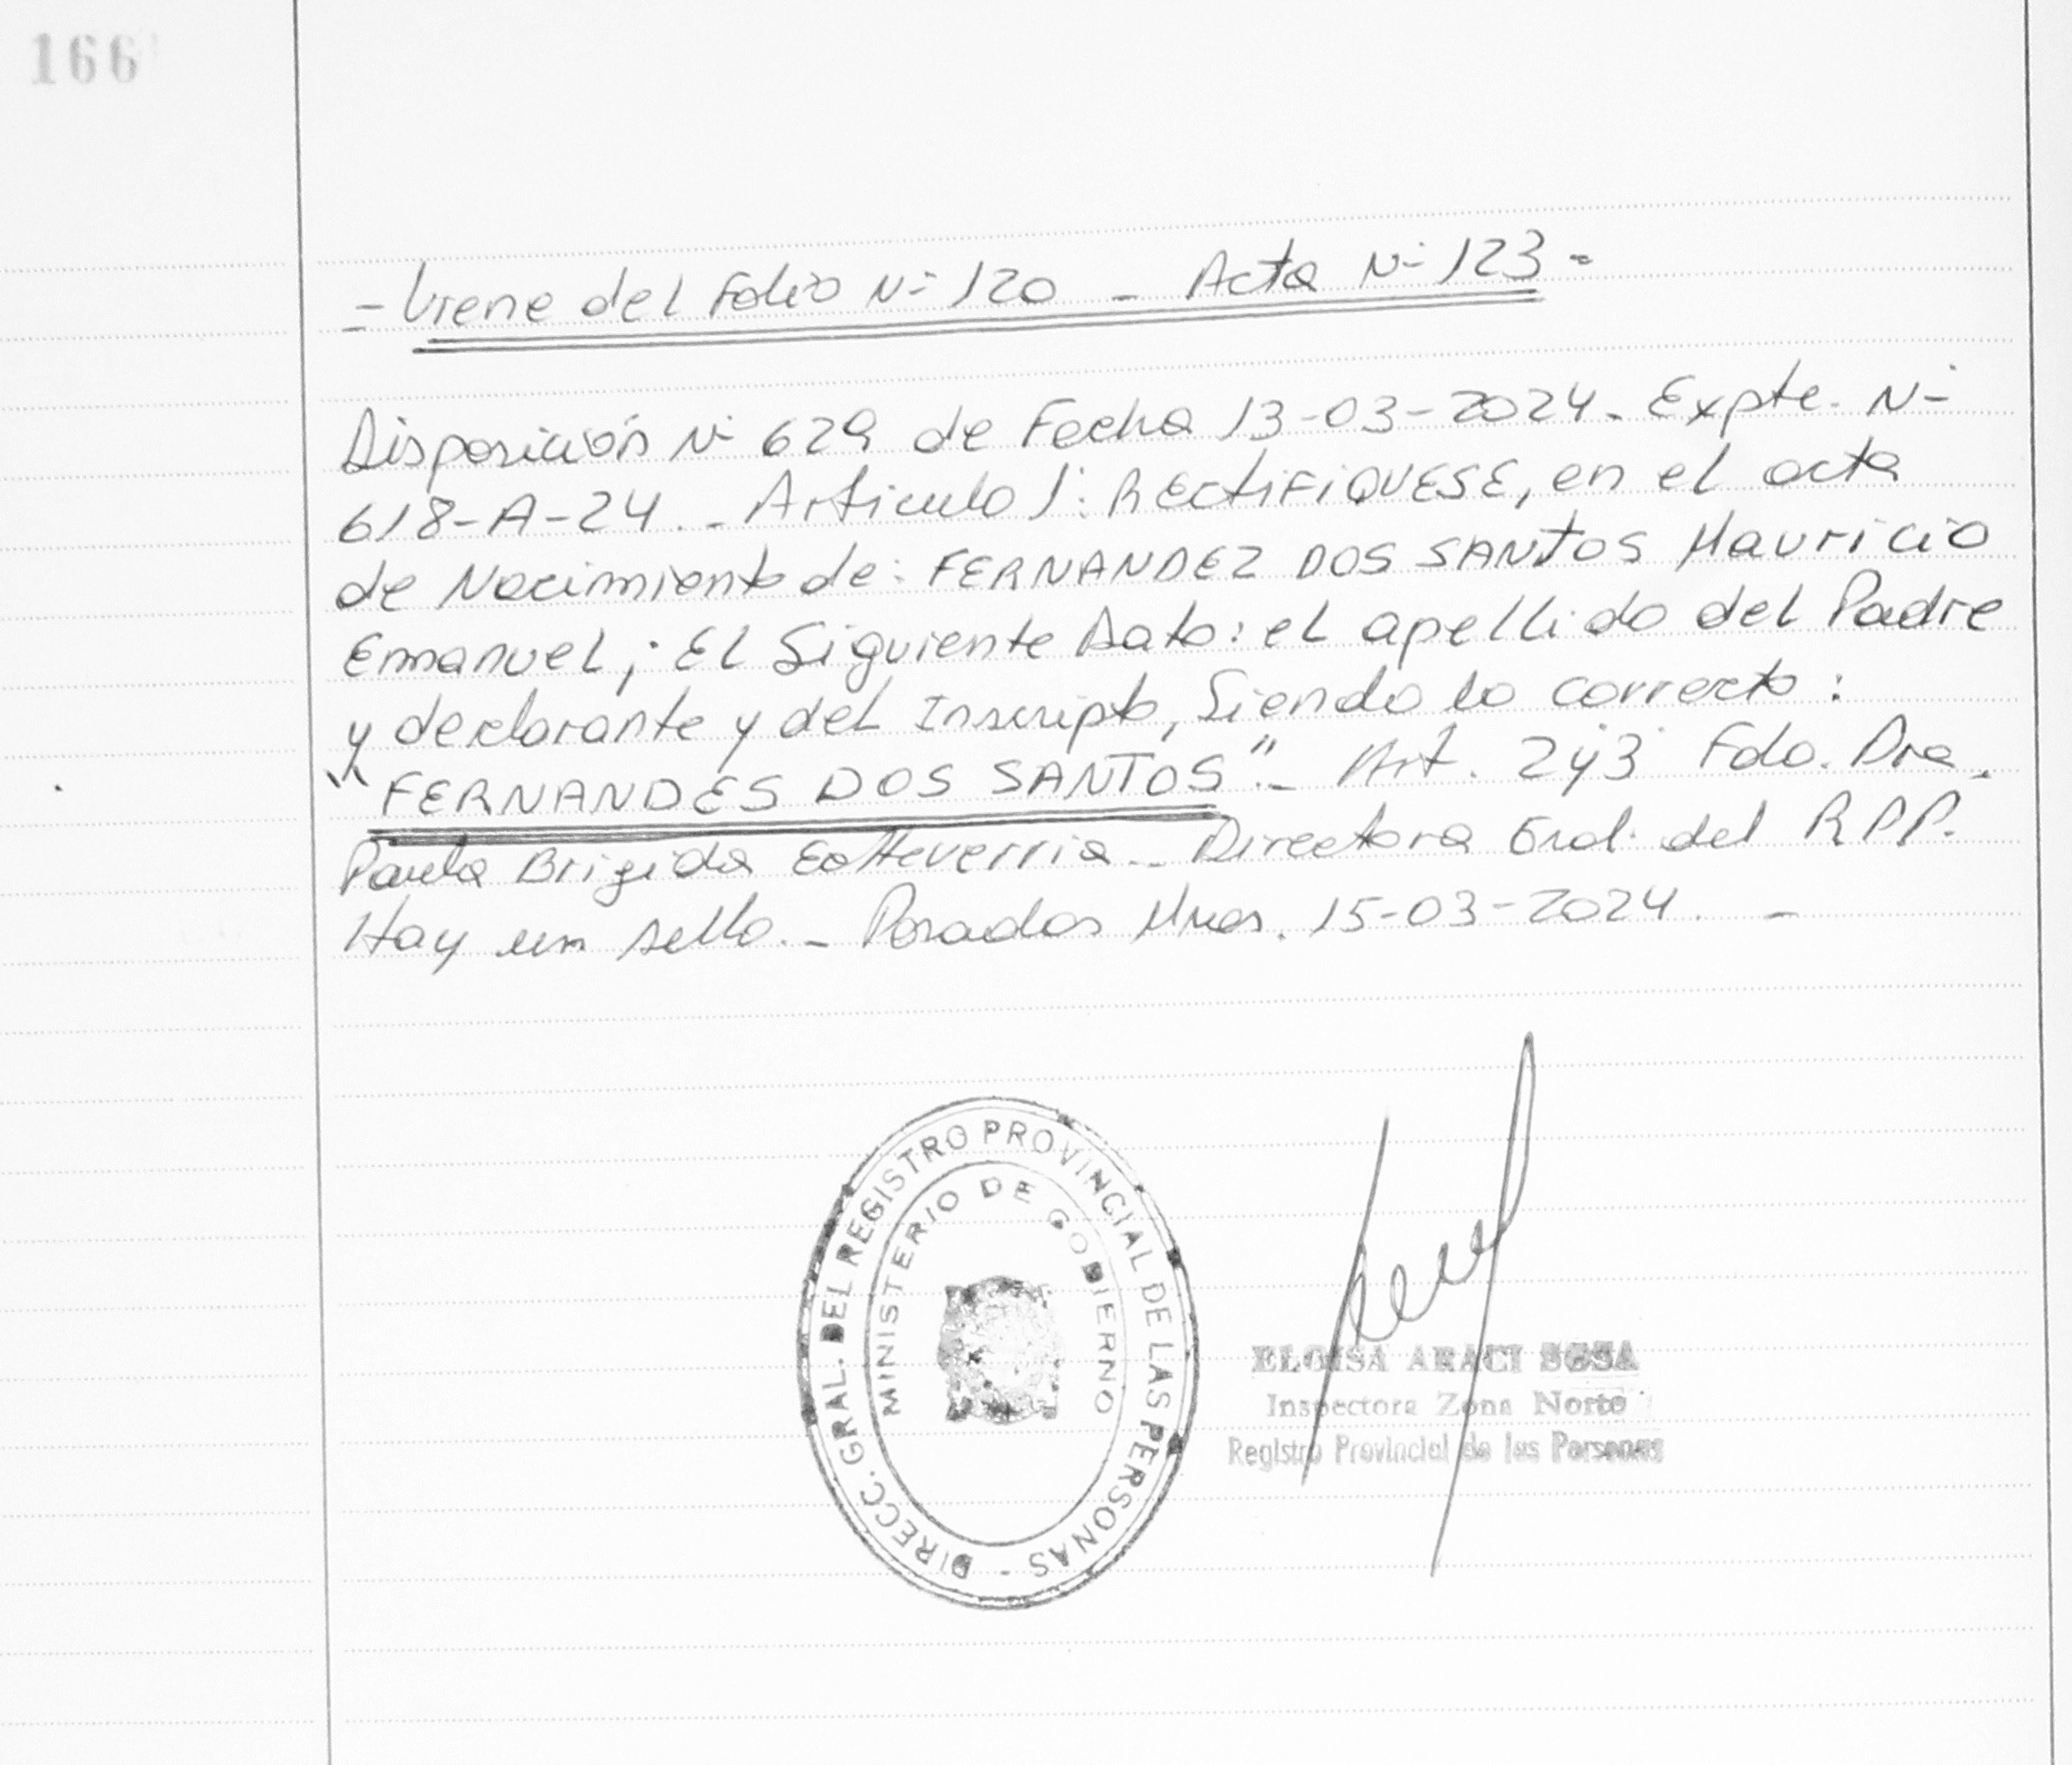 166
- Viene del Folio N° 120 - Acta N° 123 -
Disposición N° 629 de Fecha 13-03-2024. Expte. N°
618-A-24. - Articulo 1°: RECtiFiQUESE, en el acta
de Nacimiento de: FERNANDEZ DOS SANTOS Mauricio
Emanuel; El Siguiente Dato: el apellido del Padre
y declarante y del Inscripto, Siendo lo correcto:
"FERNANDES DOS SANTOS".- Art. 2y3 Fdo. Dra.
Paula Brigida Etcheverria - Directora Gral. del R.P.P.
Hay un sello. - Posadas Mnes. 15-03-2024. -
DIRECC. GRAL. DEL REGISTRO PROVINCIAL DE LAS PERSONAS -
MINISTERIO DE GOBIERNO
ELOISA ARACI SOSA
Inspectora Zona Norte
Registro Provincial de las Personas